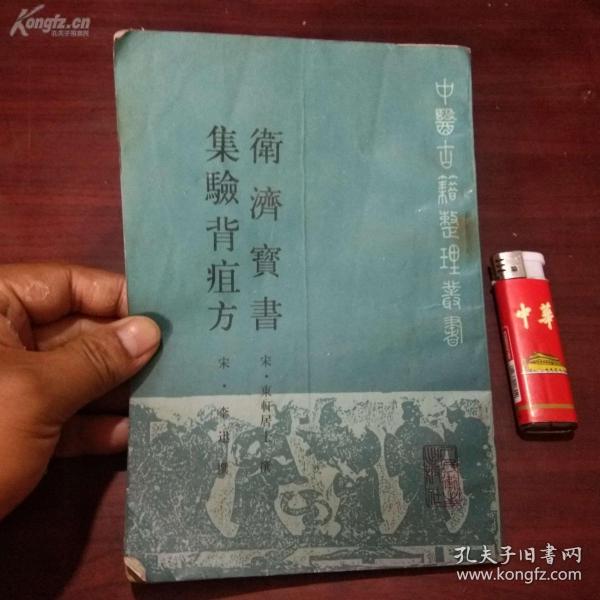 Kongfz.cn
孔夫子旧書网
中醫古籍整理叢書
衛濟寶書
宋·東軒居士 撰
集驗背疽方
宋·李迅 撰
中華
孔夫子旧書网
www.kongfz.com